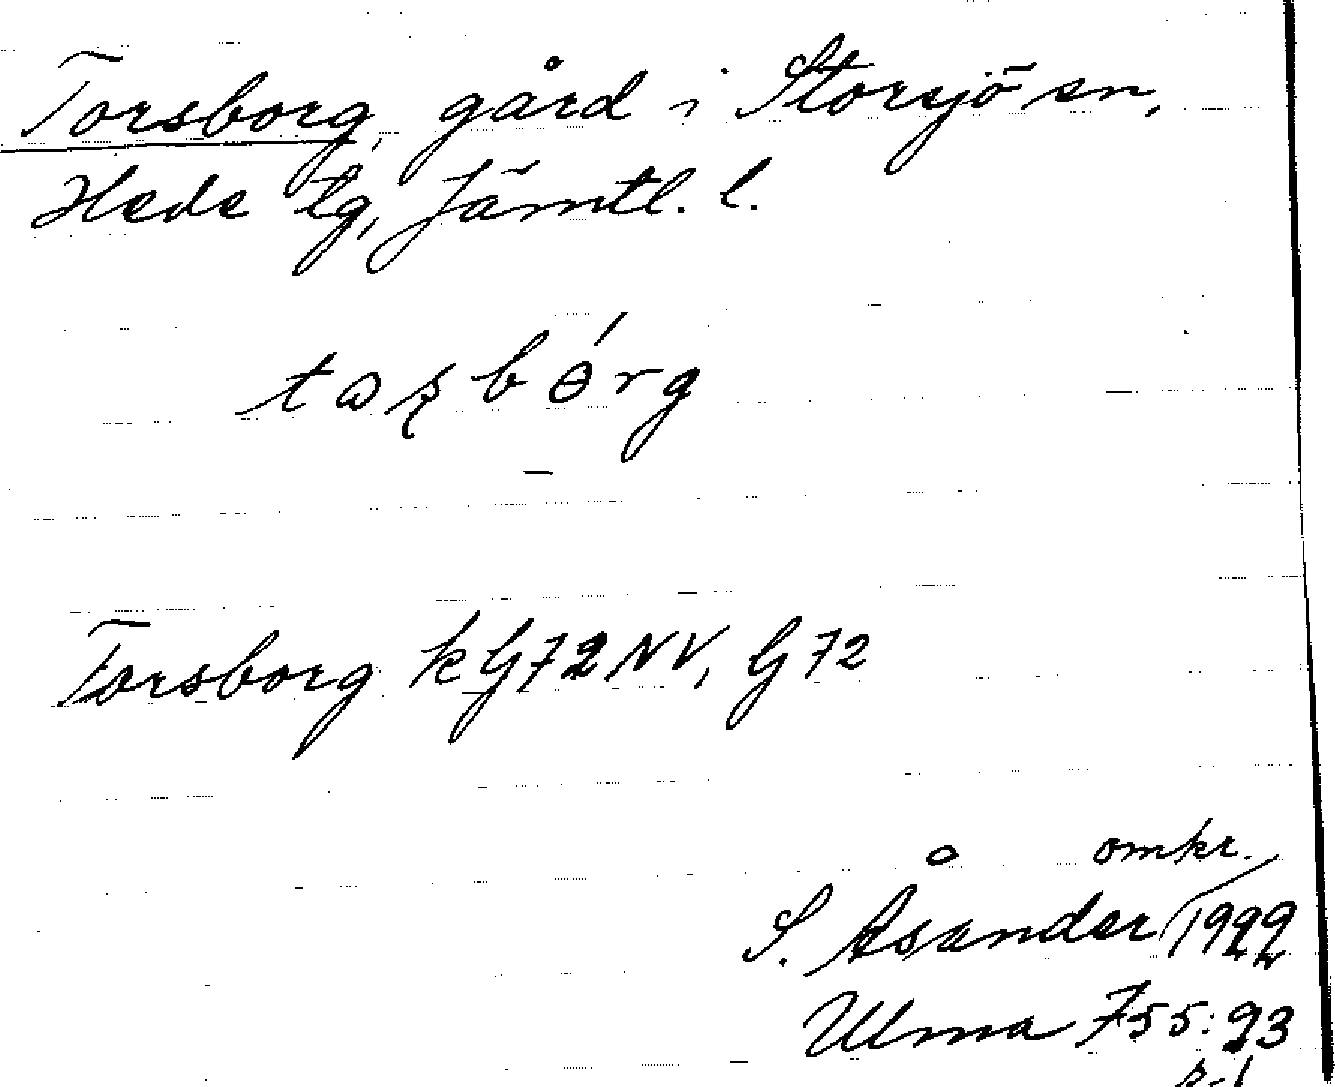 Torsborg, gård i Storsjö sn,
Hede tg, Jämtl. l.
Torsborg k G72NV, G72
omkr.
S. Åsander 1922
Ulma 755:23
s. 1